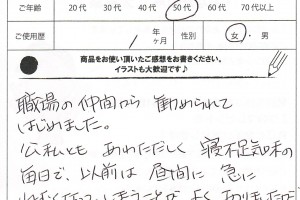 ご年齢 20代 30代 40代 50代 60代 70代以上
ご使用歴 年 ヶ月 性別 女・男
商品をお使い頂いたご感想をお書きください。
イラストも大歓迎です♪
職場の仲間から 勧められて
はじめました。
公私とも あわただしく 寝不足気味の
毎日で、以前は 昼間に 急に